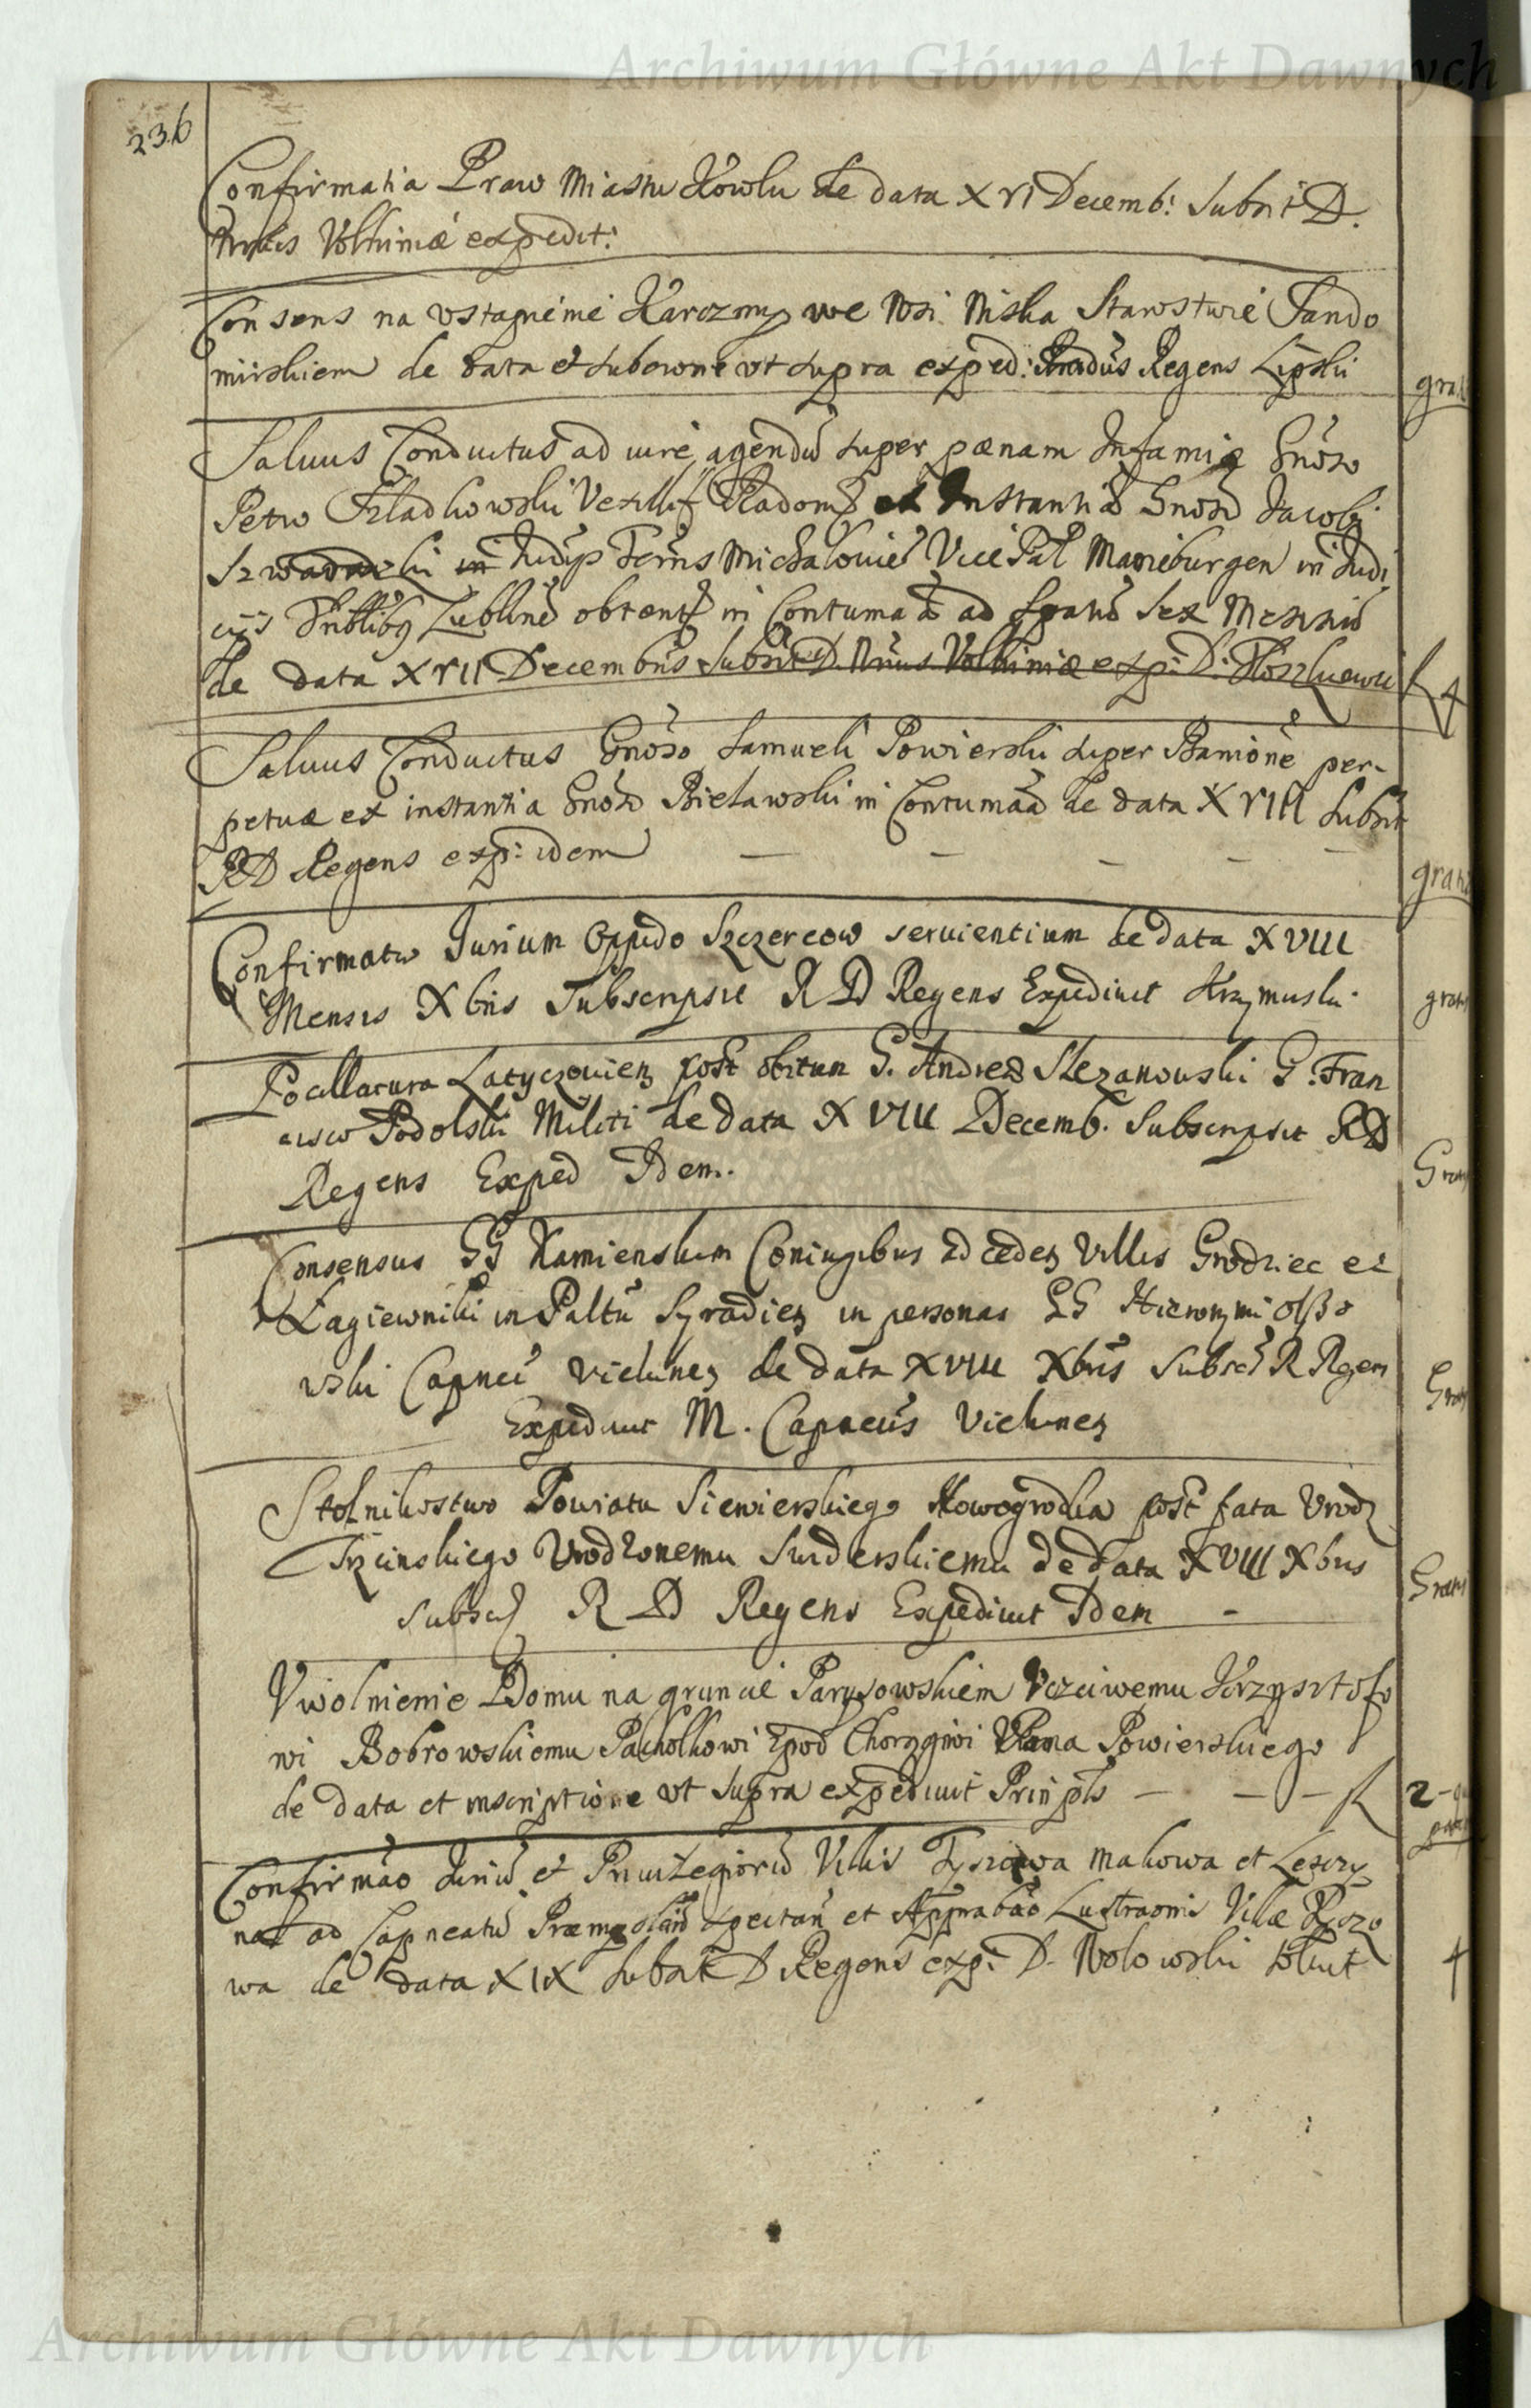 Archiwum Główne Akt Dawnych
236
Confirmatia Praw Miastu Kowlu de data XVI Decemb: Subsit D.
Volhiniæ expedit:
Consens na vstąpienie Karczmy we Wsi Niska Starostwie Sando
mirskiem de data et subscrone vt supra exped: Regens Lipski
grat
Saluus Conductus ad iure agendũ super pœnam Infamiæ Gnoso
Petro Vexillif Radom ex Instantia Gnosi Jacobi
in Judiciis Michalouie Vice Pal Marieburgen in Judi
cijs Publibꝫ Lubline obtent in Contumaã ad spatiũ Sex Mensiũ
de data XVII Decembris Subsit D. Volhiniæ exp: D.
4
Saluus Conductus Gnoso Samueli Powierski super Banione per
petuæ ex instantia Gnosi Bielawski in Contumaã de data XVIII Subsit
RD Regens exp: idem — — — — —
grat
Confirmatio Jurium Oppido Szczercow seruientium de data XVIII
Mensis Xbris Subscripsit R D Regens Expediuit Krzymuski.
grat
Pocillatura Latyczouien post obitum G. Andreæ Slezanouski G. Fran
cisco Podolski Militi de data XVIII Decemb. Subscripsit RD
Regens Exped Idem.
Grat
Consensus GG Kamienskim Coniugibus ad ceden Villis Grodziec et
Łagiewniki in Paltu Syradien in personas GG Hieronymi Olszo
wski Capnei Vielunen de data XVIII Xbris Subsc R Regens
Expediuit M. Capneus Vielunen
Grat
Stolnikostwo Powiatu Siewierskiego Nowogrodka post fata Vrodz
Trzcinskiego Vrodzonemu Suiderskiemu de data XVIII Xbris
Subsc R D Regens Expediuit Idem -
Grat
Vwolnienie Domu na gruncie Parysowskiem Vczciwemu Krzysztofo
wi Bobrowskiemu Pachołkowi Zpod Chorągwi Pana Powierskiego
de data et inscriptione vt supra expediuit Prinpls — — —
2
Confirmao Juriũ et Priuilegioriũ Villis Tyszowa Makowa et Leszczy
nat ad Capneatũ Præmyslien spectan et Approbao Lustraonis Villæ Tyszo
wa de data XIX Subsit D Regens exp: D. Wolowski soluit
4
Archiwum Główne Akt Dawnych